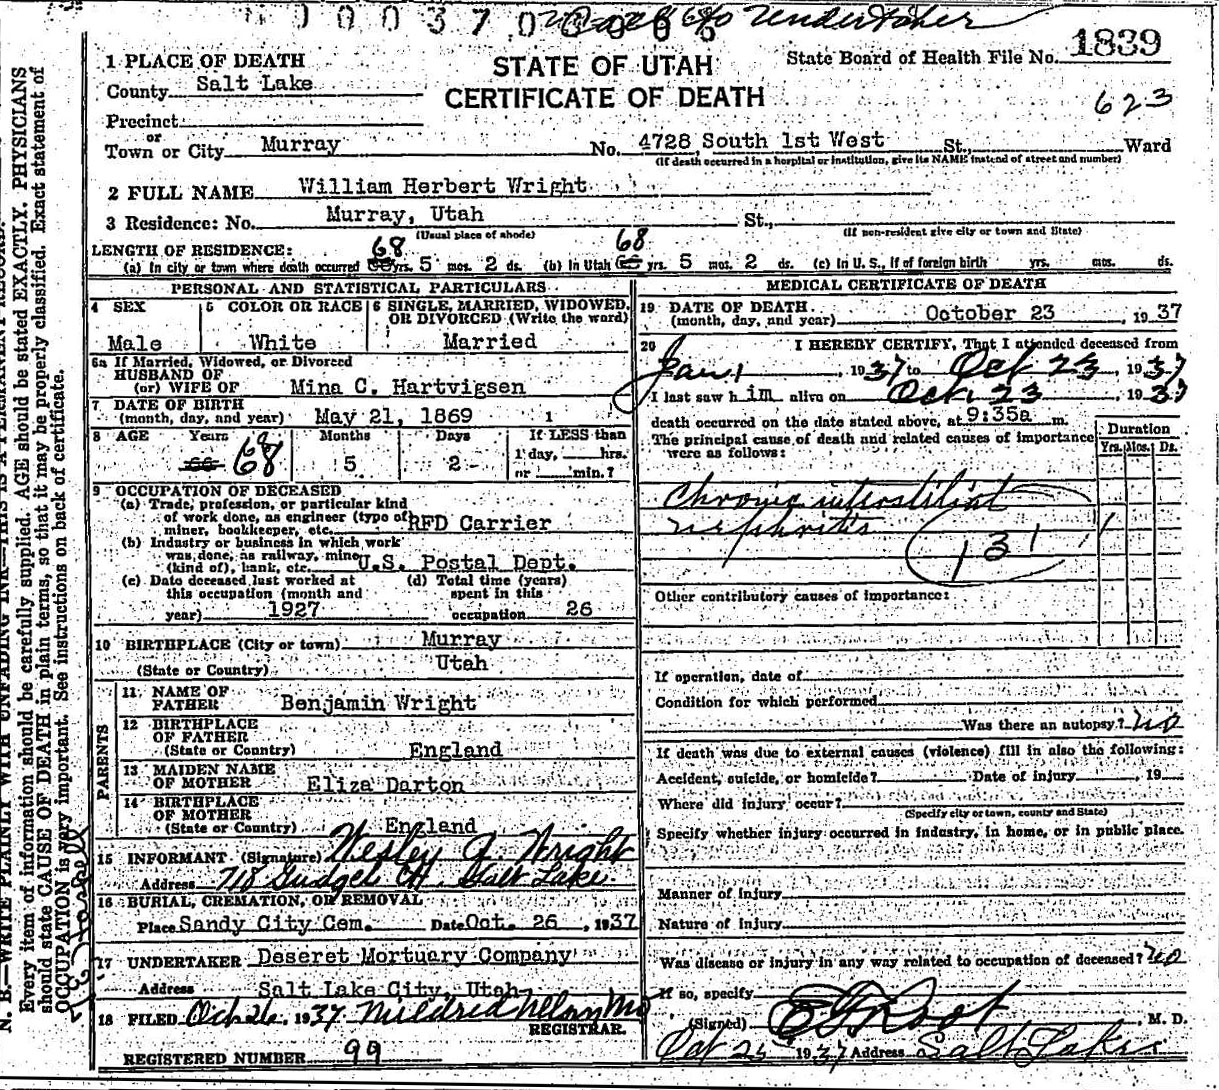 to Undertaker
1 PLACE OF DEATH
STATE OF UTAH
State Board of Health File No. 1839
County Salt Lake
CERTIFICATE OF DEATH
623
Precinct
or
Town or City Murray No. 4728 South 1st West St., Ward
(If death occurred in a hospital or institution, give its NAME instead of street and number)
2 FULL NAME William Herbert Wright
3 Residence: No. Murray, Utah St.,
(Usual place of abode) (If non-resident give city or town and State)
LENGTH OF RESIDENCE:
(a) In city or town where death occurred 68 yrs. 5 mos. 2 ds. (b) In Utah 68 yrs. 5 mos. 2 ds. (c) In U. S., if of foreign birth yrs. mos. ds.
PERSONAL AND STATISTICAL PARTICULARS
4 SEX
Male
5 COLOR OR RACE
White
6 SINGLE, MARRIED, WIDOWED, OR DIVORCED (Write the word)
Married
6a If Married, Widowed, or Divorced
HUSBAND OF
(or) WIFE OF Mina C. Hartvigsen
7 DATE OF BIRTH
(month, day, and year) May 21, 1869
8 AGE Years Months Days If LESS than
66 68 5 2 1 day, hrs.
or min.?
9 OCCUPATION OF DECEASED
(a) Trade, profession, or particular kind
of work done, as engineer (type of) RFD Carrier
miner, bookkeeper, etc.
(b) Industry or business in which work
was done, as railway, mine
(kind of), bank, etc. U.S. Postal Dept.
(c) Date deceased last worked at
this occupation (month and
year) 1927
(d) Total time (years)
spent in this
occupation 26
10 BIRTHPLACE (City or town) Murray
(State or Country) Utah
PARENTS
11 NAME OF
FATHER Benjamin Wright
12 BIRTHPLACE
OF FATHER
(State or Country) England
13 MAIDEN NAME
OF MOTHER Eliza Darton
14 BIRTHPLACE
OF MOTHER
(State or Country) England
15 INFORMANT (Signature) Wesley A. Wright
Address Salt Lake
16 BURIAL, CREMATION, OR REMOVAL
Place Sandy City Cem. Date Oct. 26, 1937
17 UNDERTAKER Deseret Mortuary Company
Address Salt Lake City, Utah
18 FILED Oct 26, 1937 Mildred
REGISTRAR.
REGISTERED NUMBER 99
MEDICAL CERTIFICATE OF DEATH
19 DATE OF DEATH
(month, day, and year) October 23, 1937
20 I HEREBY CERTIFY, That I attended deceased from
Jan. 1, 1937 to Oct 23, 1937
I last saw him alive on Oct. 23 1937
death occurred on the date stated above, at 9:35a m.
The principal cause of death and related causes of importance
were as follows:
Duration
Yrs. Mos. Ds.
Chronic interstitial
nephritis 1
131
Other contributory causes of importance:
If operation, date of
Condition for which performed
Was there an autopsy? no
If death was due to external causes (violence) fill in also the following:
Accident, suicide, or homicide? Date of injury , 19
Where did injury occur?
(Specify city or town, county and State)
Specify whether injury occurred in industry, in home, or in public place.
Manner of Injury
Nature of Injury
Was disease or injury in any way related to occupation of deceased? no
If so, specify
(Signed) Root, M. D.
Oct 25 1937 Address Salt Lake
N. B.—WRITE PLAINLY WITH UNFADING INK—THIS IS A PERMANENT RECORD.
Every item of information should be carefully supplied. AGE should be stated EXACTLY. PHYSICIANS
should state CAUSE OF DEATH in plain terms, so that it may be properly classified. Exact statement of
OCCUPATION is very important. See instructions on back of certificate.